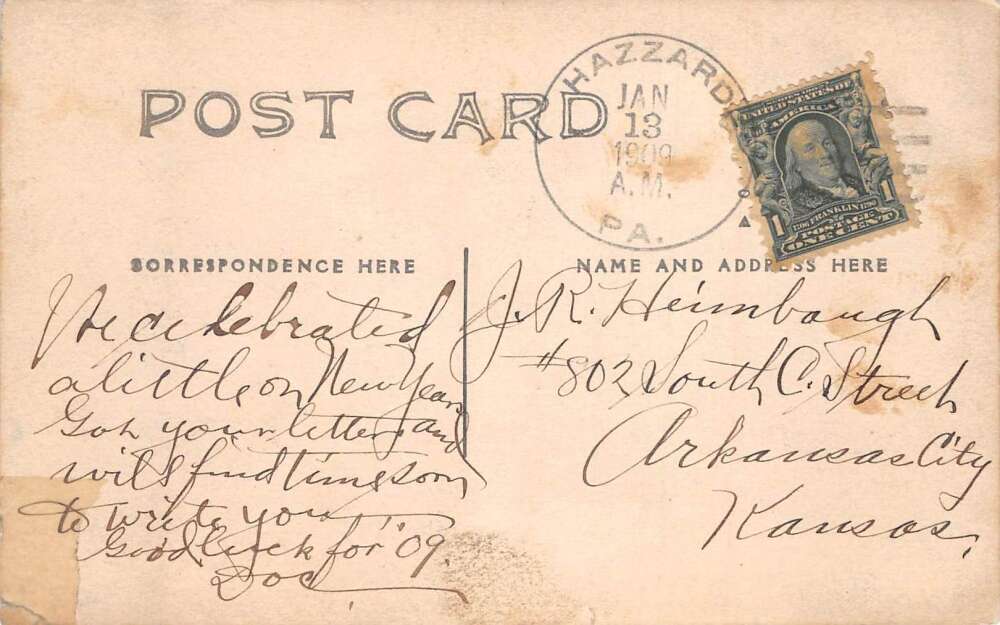 POST CARD
HAZZARD
JAN
13
1909
A.M.
PA.
UNITED STATES OF
AMERICA
1706 FRANKLIN 1790
1 POSTAGE 1
ONE CENT
CORRESPONDENCE HERE
We celebrated
a little on New Years
Got your letter and
will find time soon
to write you
Good luck for "09.
Doc
NAME AND ADDRESS HERE
J. R. Heimbaugh
#802 South C. Street
Arkansas City
Kansas.